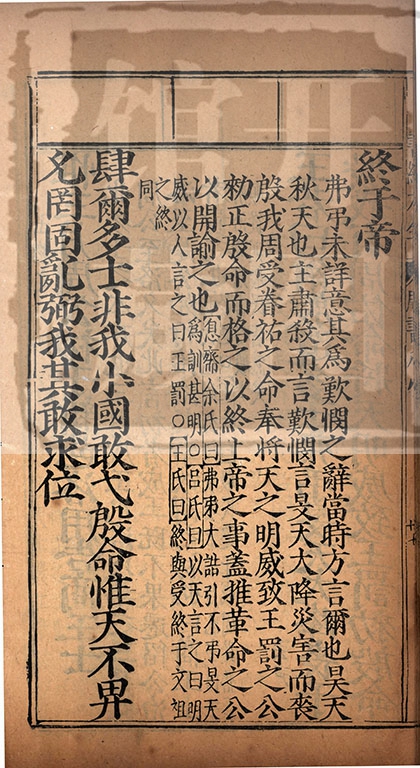 終于帝
弗弔未詳意其為歎憫之辭當時方言爾也旻天
秋天也主肅殺而言歎憫言旻天大降災害而喪
殷我周受眷祐之命奉將天之明威致王罰之公
勑正殷命而格之以終上帝之事蓋推革命之公
以開諭之也息齋余氏曰弗弔大誥引不弔旻天
為訓甚明○呂氏曰以天言之曰明
威以人言之曰王罰○王氏曰終與受終于文祖
之終
同
肆爾多士非我小國敢弋殷命惟天不畀
允罔固亂弼我其敢求位